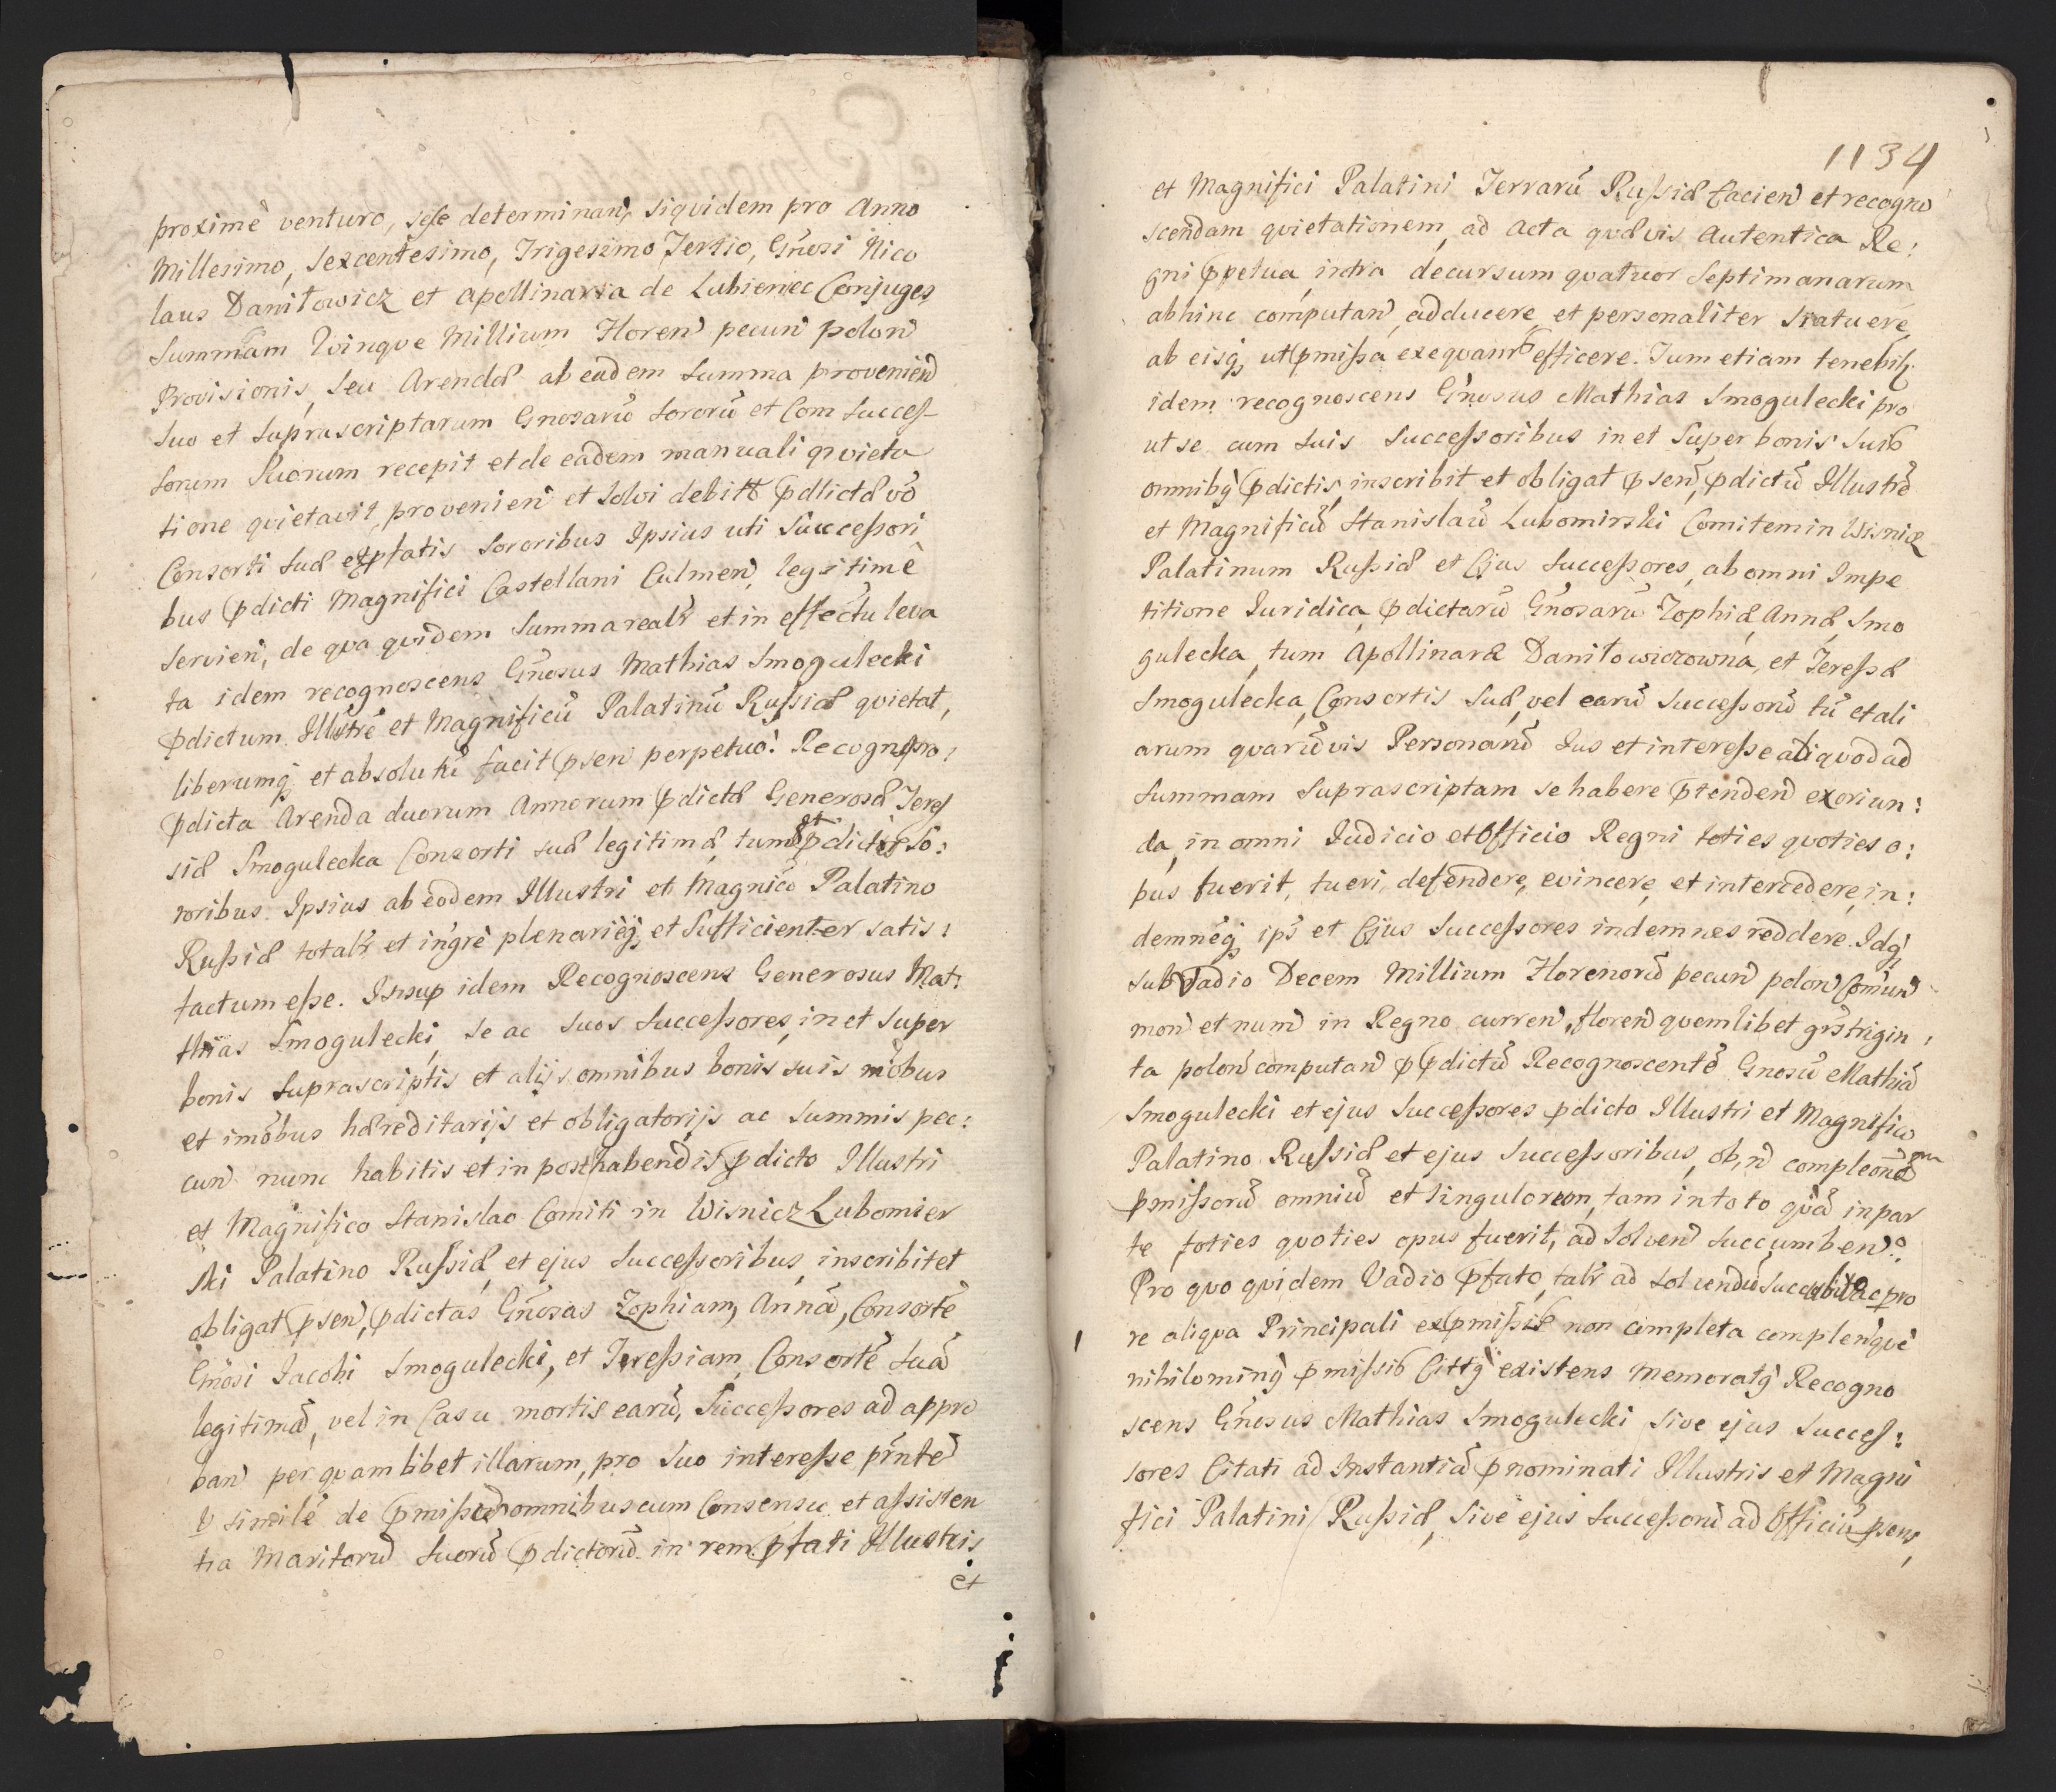 proximè venturo, sese determinan, siquidem pro Anno
Millesimo, Sexcentesimo, Trigesimo Tertio, Gñosi Nico
laus Daniłowicz et Apollinaria de Lubieniec Conjuges
Summam Quinque Millium Floreñ pecuñ poloñ
Provisionis, seu Arendæ ab eadem Summa provenieñ
suo et Suprascriptarum Gnosarũ Sororũ et Com Succes-
sorum Suorum recepit et de eadem manuali quieta
tione quietavit, provenieñ et solvi debitæ pdictæ vō
Consorti suæ et pfatis Sororibus Ipsius uti Successori
bus pdicti Magnifici Castellani Culmeñ legitimè
servieñ, de qua quidem Summa realr et in effectu leva
ta idem recognoscens Gñosus Mathias Smogulecki
pdictum Illustrẽ et Magnificũ Palatinũ Russiæ quietat,
liberumq et absolutũ facit pseñ perpetuo: Recogno pro:
pdicta Arenda duorum Annorum pdictæ Generosæ Teres
siæ Smogulecka Consorti suæ legitimæ, tum et pdictis So:
roribus Ipsius ab eodem Illustri et Magnico Palatino
Russiæ totalr et ingrè plenarièq et Sufficienter satis:
factum esse. Insup idem Recognoscens Generosus Mat:
thias Smogulecki, se ac suos Successores, in et super
bonis suprascriptis et alijs omnibus bonis suis mõbus
et imõbus hæreditarijs et obligatorijs ac Summis pec:
cuñ nunc habitis et in posthabendis pdicto Illustri
et Magnifico Stanislao Comiti in Wisnicz Lubomier
ski Palatino Russiæ, et ejus Successoribus, inscribit et
obligat pseñ, pdictas Gñosas Zophiam, Annã, Consortẽ
Gñosi Jacobi Smogulecki, et Teressiam Consortẽ Suã
legitimã, vel in Casu mortis earũ, Successores ad appro
bañ per quamlibet illarum, pro suo interesse pñtẽ
v similẽ de pmissis omnibus cum Consensu et assisten
tia Maritorũ Suorũ pdictorũ in rem pfati Illustris
et
1134
et Magnifici Palatini Terrarũ Russiæ facieñ et recogno
scendam quietationem, ad Acta quævis Autentica Re:
gni ppetua, intra decursum quatuor Septimanarum
abhinc computañ, adducere et personaliter Statuere
ab eisq, ut pmissa exequantr efficere. Tum etiam tenebitr
idem recognoscens Gñosus Mathias Smogulecki pro
ut se cum Suis Successoribus in et Super bonis Suis
omnibq pdictis, inscribit et obligat pseñ, pdictũ Illustrẽ
et Magnificũ Stanislaũ Lubomirski Comitem in Wisnicz
Palatinum Russiæ et Ejus Successores, ab omni Impe
titione Juridica, pdictarũ Gñosarũ Zophiæ, Annæ, Smo
gulecka, tum Apollinaræ Daniłowiczowna, et Teressæ
Smogulecka, Consortis Suæ, vel earũ Successorũ tũ et ali
arum quarũvis Personarũ Jus et interesse aliquod ad
Summam Suprascriptam se habere ptendeñ exoriun:
da, in omni Judicio et Officio Regni toties quoties o:
pus fuerit, tueri, defendere, evincere, et intercedere, in:
demneq ips et Ejus Successores indemnes reddere. Idq
sub Vadio Decem Millium Florenorũ pecuñ poloñ Comuñ
moñ et numñ in Regno curreñ, floreñ quemlibet grs trigin,
ta poloñ computañ p pdictũ Recognoscentẽ Gnosũ Mathiã
Smogulecki et ejus Successores pdicto Illustri et Magnifico
Palatino Russiæ et ejus Successoribus, ob ñ compleõnem
pmissorũ omniũ et singulorum, tam in toto quã in par
te toties quoties opus fuerit, ad Solveñ Succumbeñ:
Pro quo quidem Vadio pfato, talr ad solvendũ succubito ac pro
re aliqua Principali ex pmissis non completa complenquè
nihilominq pmissis Cittq existens Memoratq Recogno
scens Gñosus Mathias Smogulecki sive ejus Succes:
sores Citati ad Instantiã pnominati Illustris et Magni
fici Palatini Russiæ, Sive ejus Successorũ ad Officiũ psens,